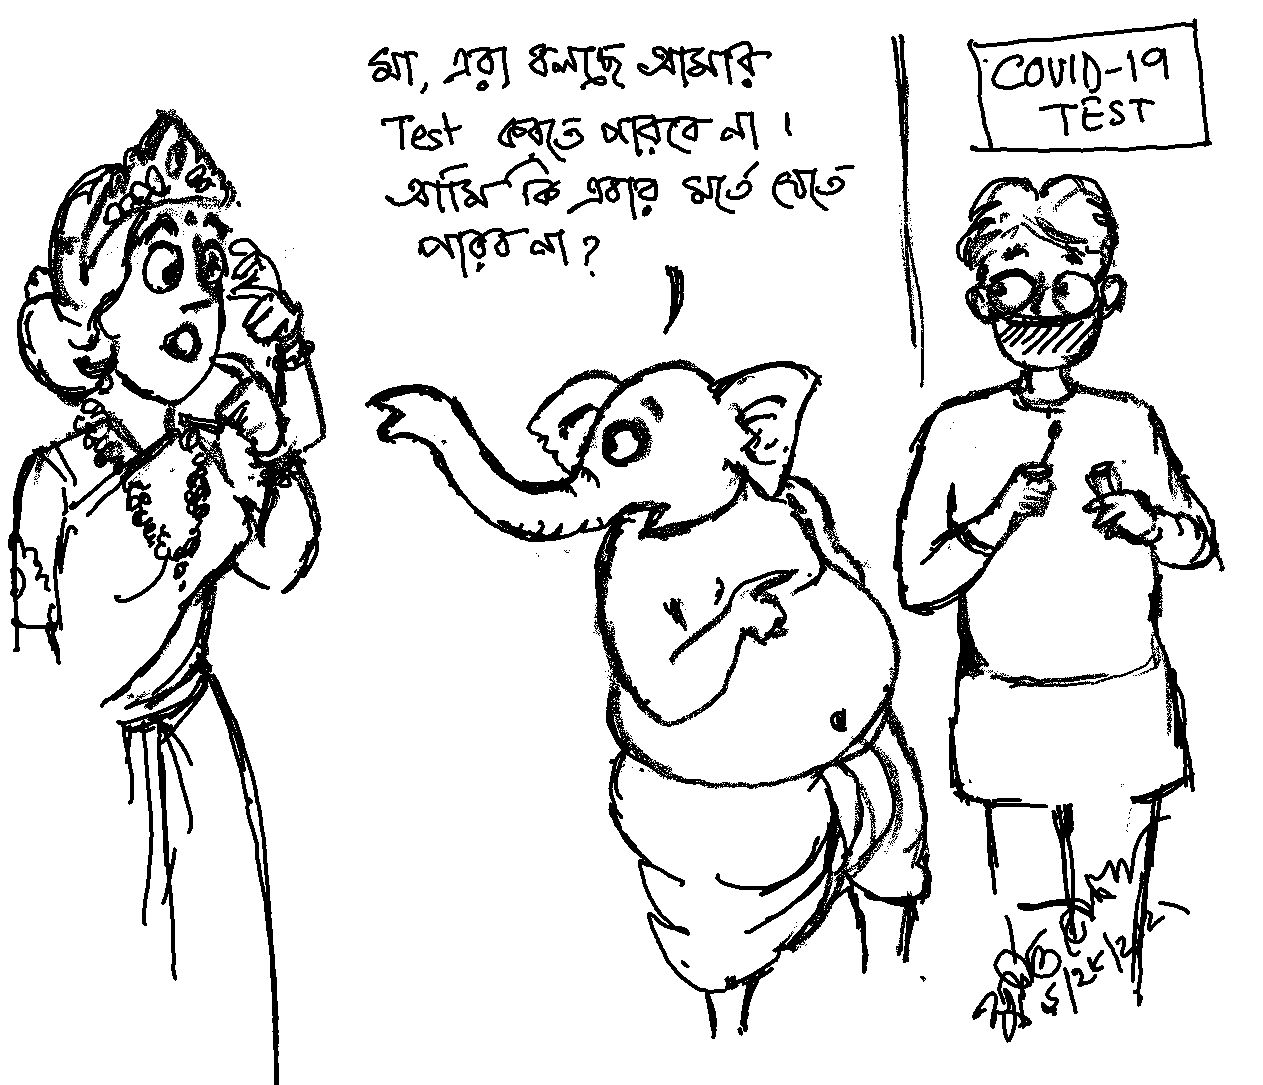 মা, এরা বলছে আমার
Test করতে পারবে না।
আমি কি এবার মর্তে যেতে
পারব না?
COVID-19
TEST